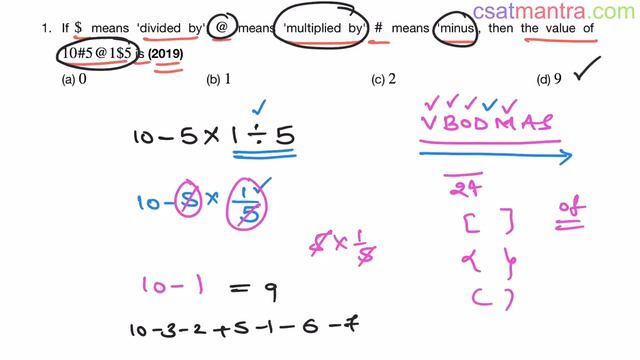 csatmantra.com
1. If $ means 'divided by' @ means 'multiplied by' # means 'minus', then the value of
10#5@1$5 is (2019)
(a) 0 (b) 1 (c) 2 (d) 9 ✓
10 - 5 × 1 ÷ 5
VBODMAS
10 - 5 × 1/5
24
of
[ ]
5 × 1/5
{ }
10 - 1 = 9
( )
10 - 3 - 2 + 5 - 1 - 6 - 7